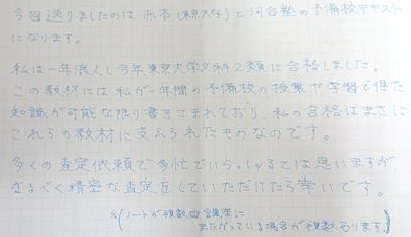 今回送りましたのは 赤本(東京大学)と河合塾の予備校テキスト
になります。
私は一年浪人し今年東京大学文科2類に合格しました。
この教材には 私が一年間の予備校の授業や学習で得た
知識が可能な限り書きこまれており、私の合格はまさに
これらの教材に支えられたものなのです。
多くの査定依頼で多忙でいらっしゃるとは思いますが
なるべく精密な査定をしていただけたら幸いです。
(ノートが複数講座に
またがっている場合が複数あります。)